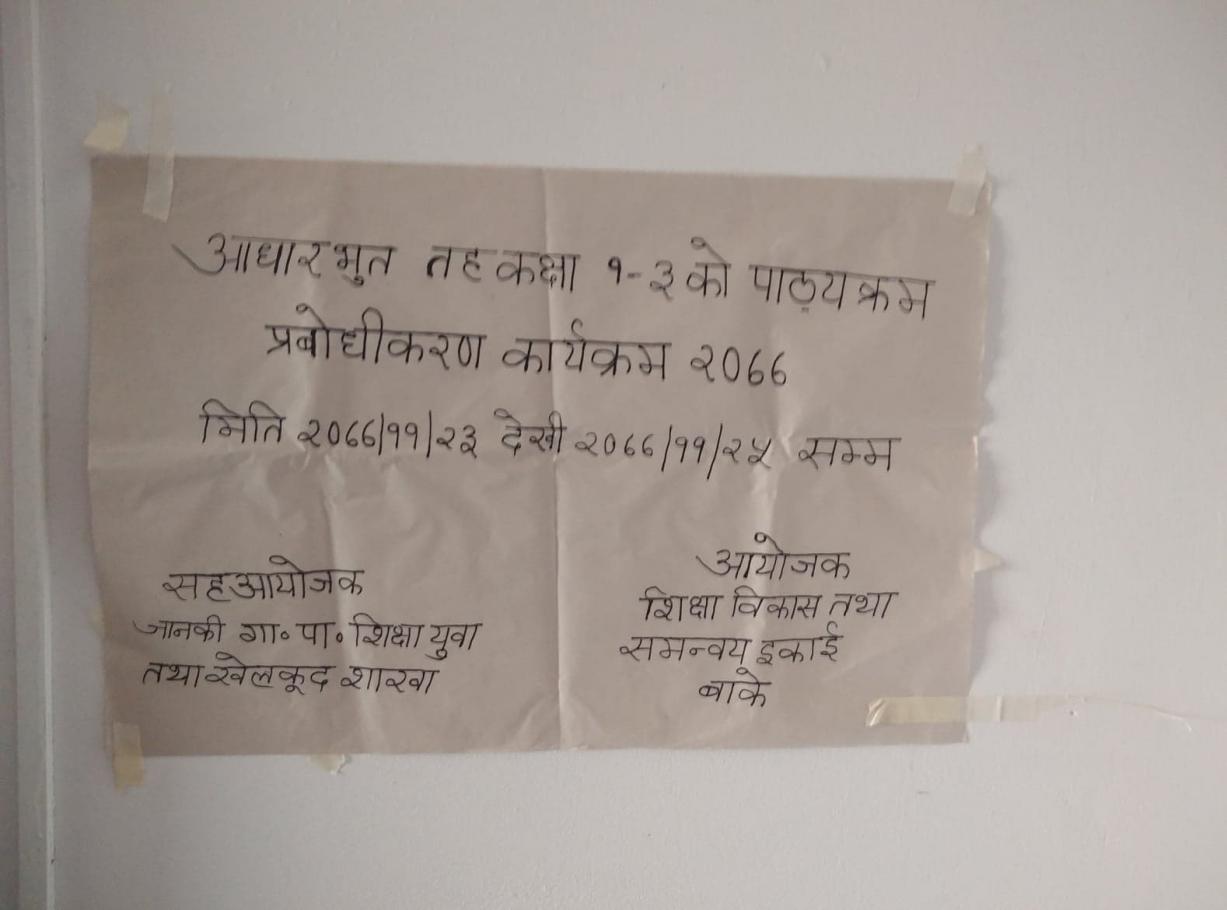 आधारभुत तह कक्षा १-३ को पाठ्यक्रम
प्रबोधीकरण कार्यक्रम २०७७
मिति २०७७/११/२३ देखी २०७७/११/२५ सम्म
आयोजक
शिक्षा विकास तथा
समन्वय इकाई
बाके
सहआयोजक
जानकी गा॰ पा॰ शिक्षा युवा
तथा खेलकूद शाखा